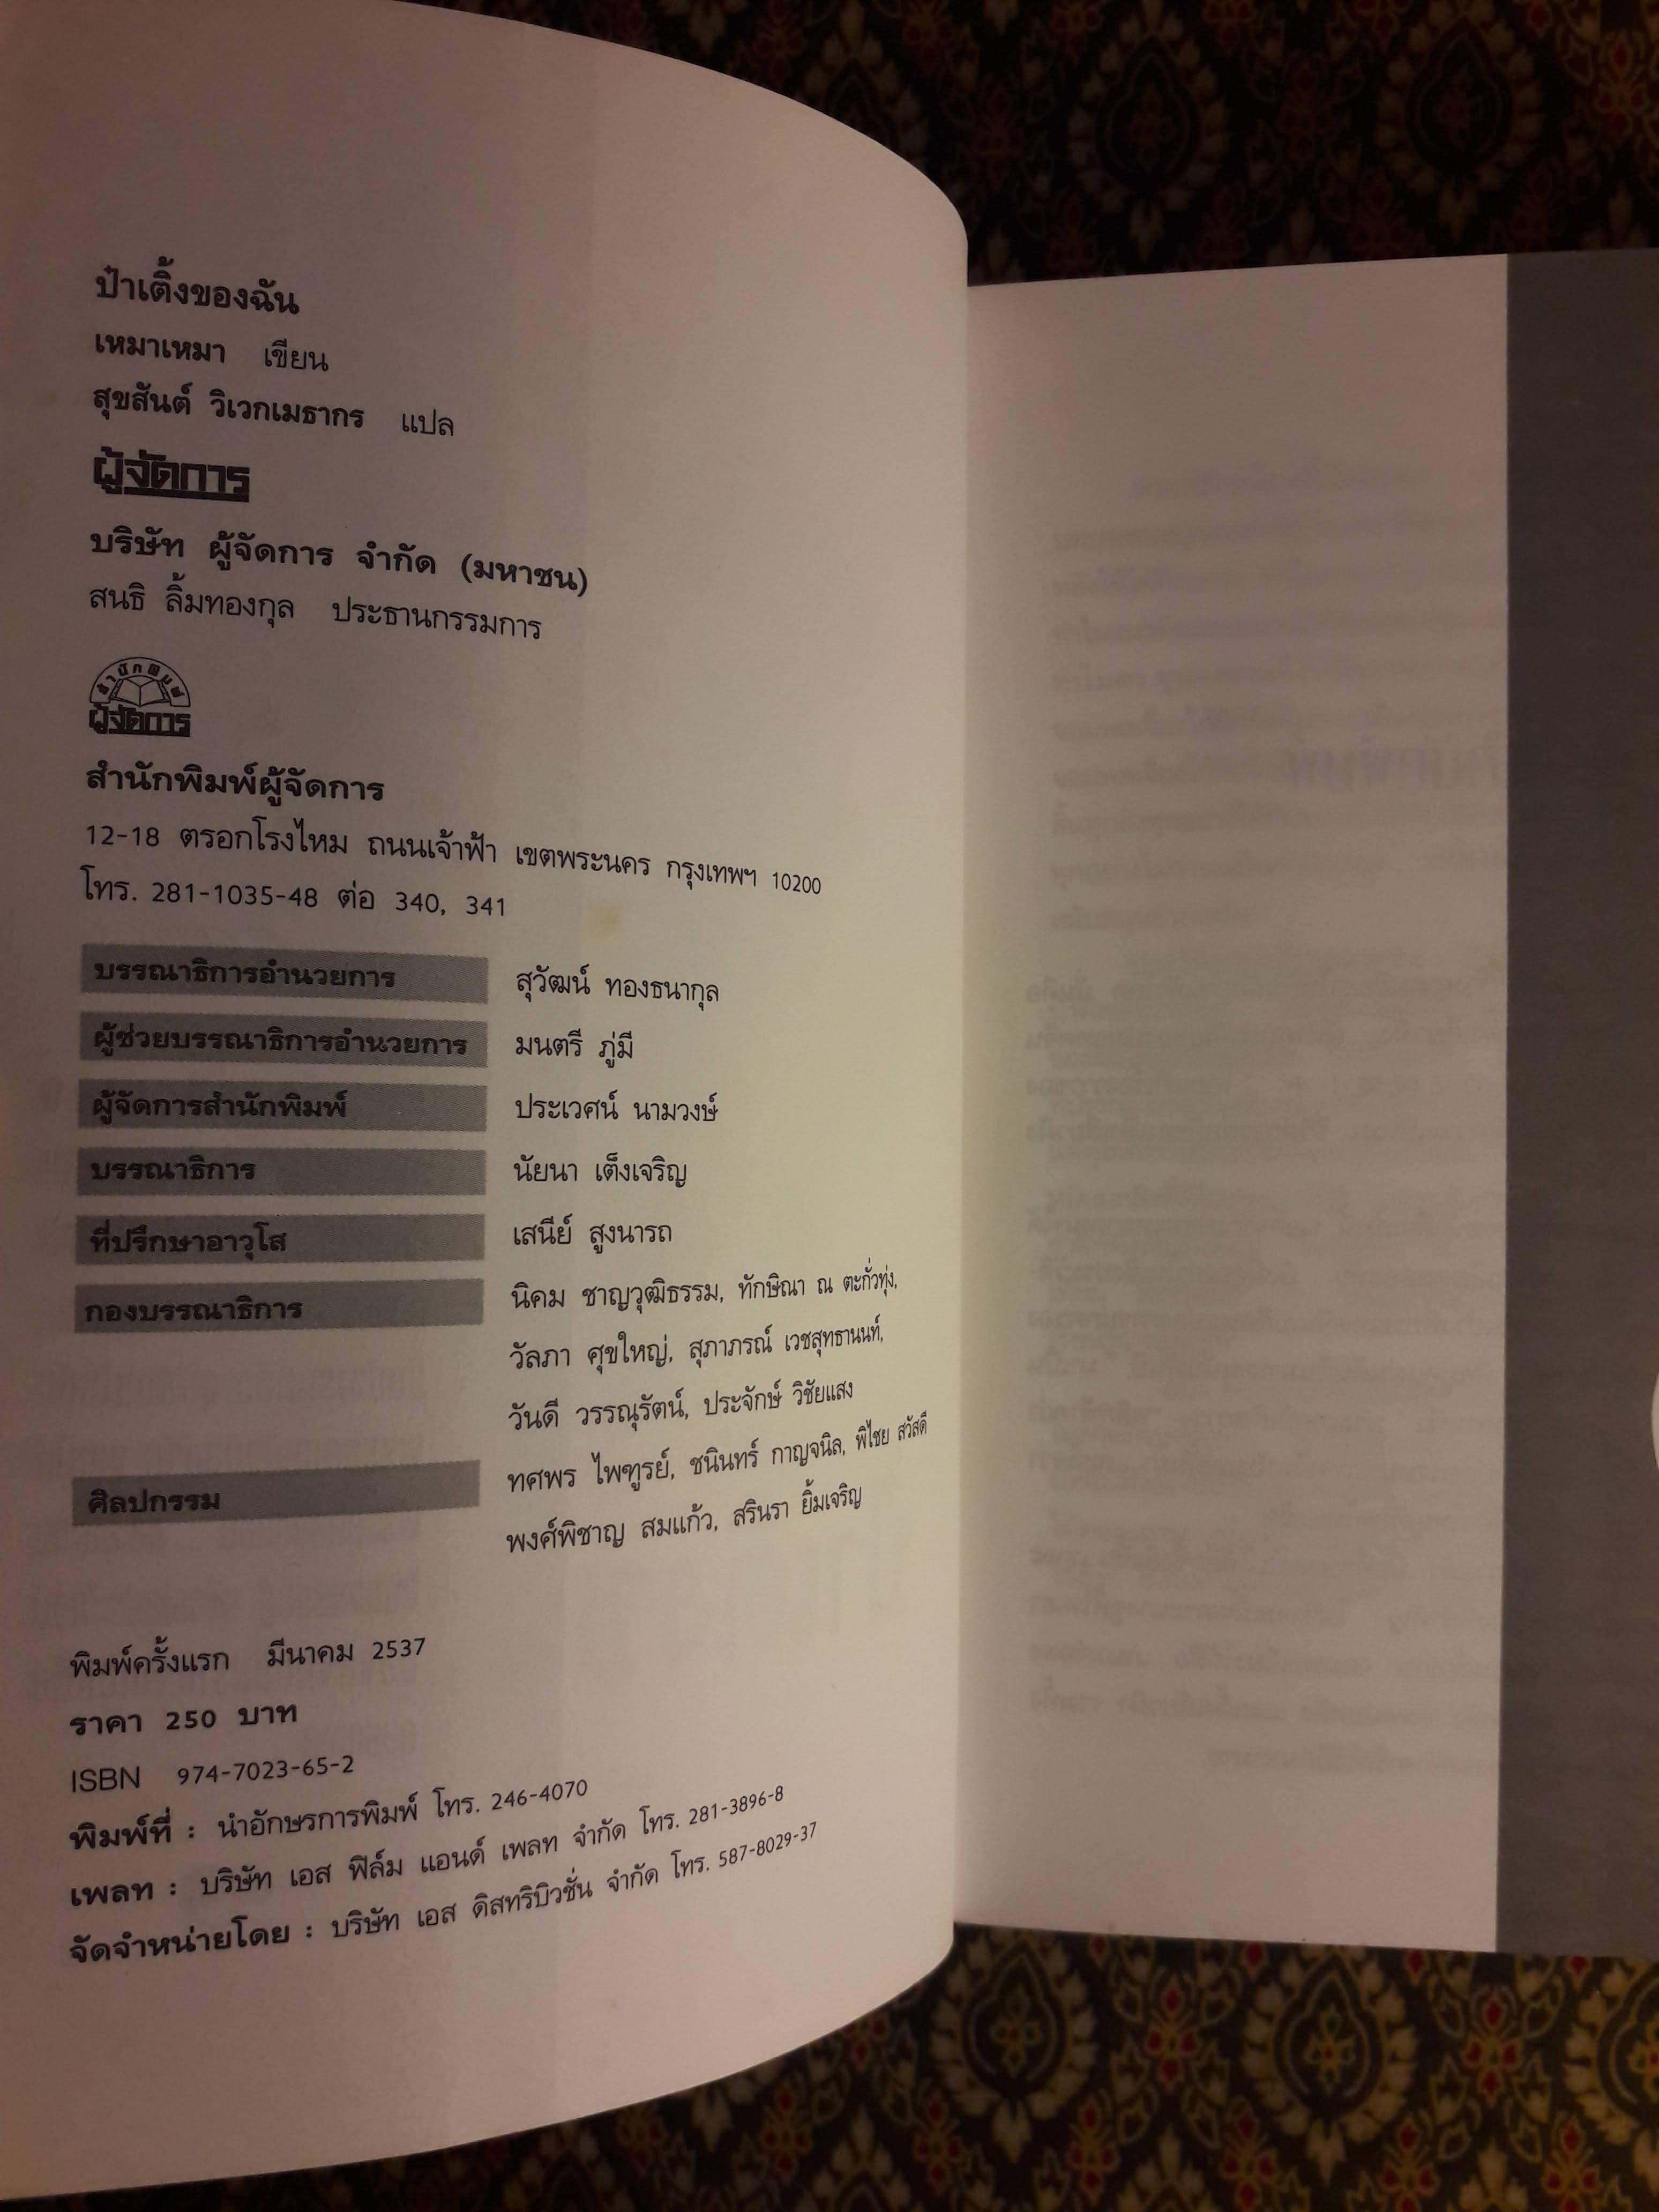 ป๋าเติ้งของฉัน
เหมาเหมา เขียน
สุขสันต์ วิเวกเมธากร แปล
ผู้จัดการ
บริษัท ผู้จัดการ จำกัด (มหาชน)
สนธิ ลิ้มทองกุล ประธานกรรมการ
สำนักพิมพ์
ผู้จัดการ
สำนักพิมพ์ผู้จัดการ
12-18 ตรอกโรงไหม ถนนเจ้าฟ้า เขตพระนคร กรุงเทพฯ 10200
โทร. 281-1035-48 ต่อ 340, 341
บรรณาธิการอำนวยการ สุวัฒน์ ทองธนากุล
ผู้ช่วยบรรณาธิการอำนวยการ มนตรี ภู่มี
ผู้จัดการสำนักพิมพ์ ประเวศน์ นามวงษ์
บรรณาธิการ นัยนา เต็งเจริญ
ที่ปรึกษาอาวุโส เสนีย์ สูงนารถ
กองบรรณาธิการ นิคม ชาญวุฒิธรรม, ทักษิณา ณ ตะกั่วทุ่ง,
วัลภา ศุขใหญ่, สุภาภรณ์ เวชสุทธานนท์,
วันดี วรรณุรัตน์, ประจักษ์ วิชัยแสง
ศิลปกรรม ทศพร ไพฑูรย์, ชนินทร์ กาญจนิล, พิไชย สวัสดี
พงศ์พิชาญ สมแก้ว, สรินรา ยิ้มเจริญ
พิมพ์ครั้งแรก มีนาคม 2537
ราคา 250 บาท
ISBN 974-7023-65-2
พิมพ์ที่ : นำอักษรการพิมพ์ โทร. 246-4070
เพลท : บริษัท เอส ฟิล์ม แอนด์ เพลท จำกัด โทร. 281-3896-8
จัดจำหน่ายโดย : บริษัท เอส ดิสทริบิวชั่น จำกัด โทร. 587-8029-37